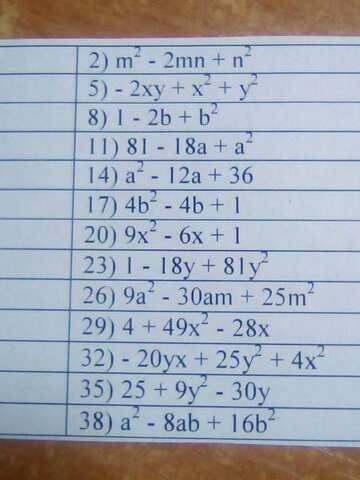 2) m² - 2mn + n²
5) - 2xy + x² + y²
8) 1 - 2b + b²
11) 81 - 18a + a²
14) a² - 12a + 36
17) 4b² - 4b + 1
20) 9x² - 6x + 1
23) 1 - 18y + 81y²
26) 9a² - 30am + 25m²
29) 4 + 49x² - 28x
32) - 20yx + 25y² + 4x²
35) 25 + 9y² - 30y
38) a² - 8ab + 16b²